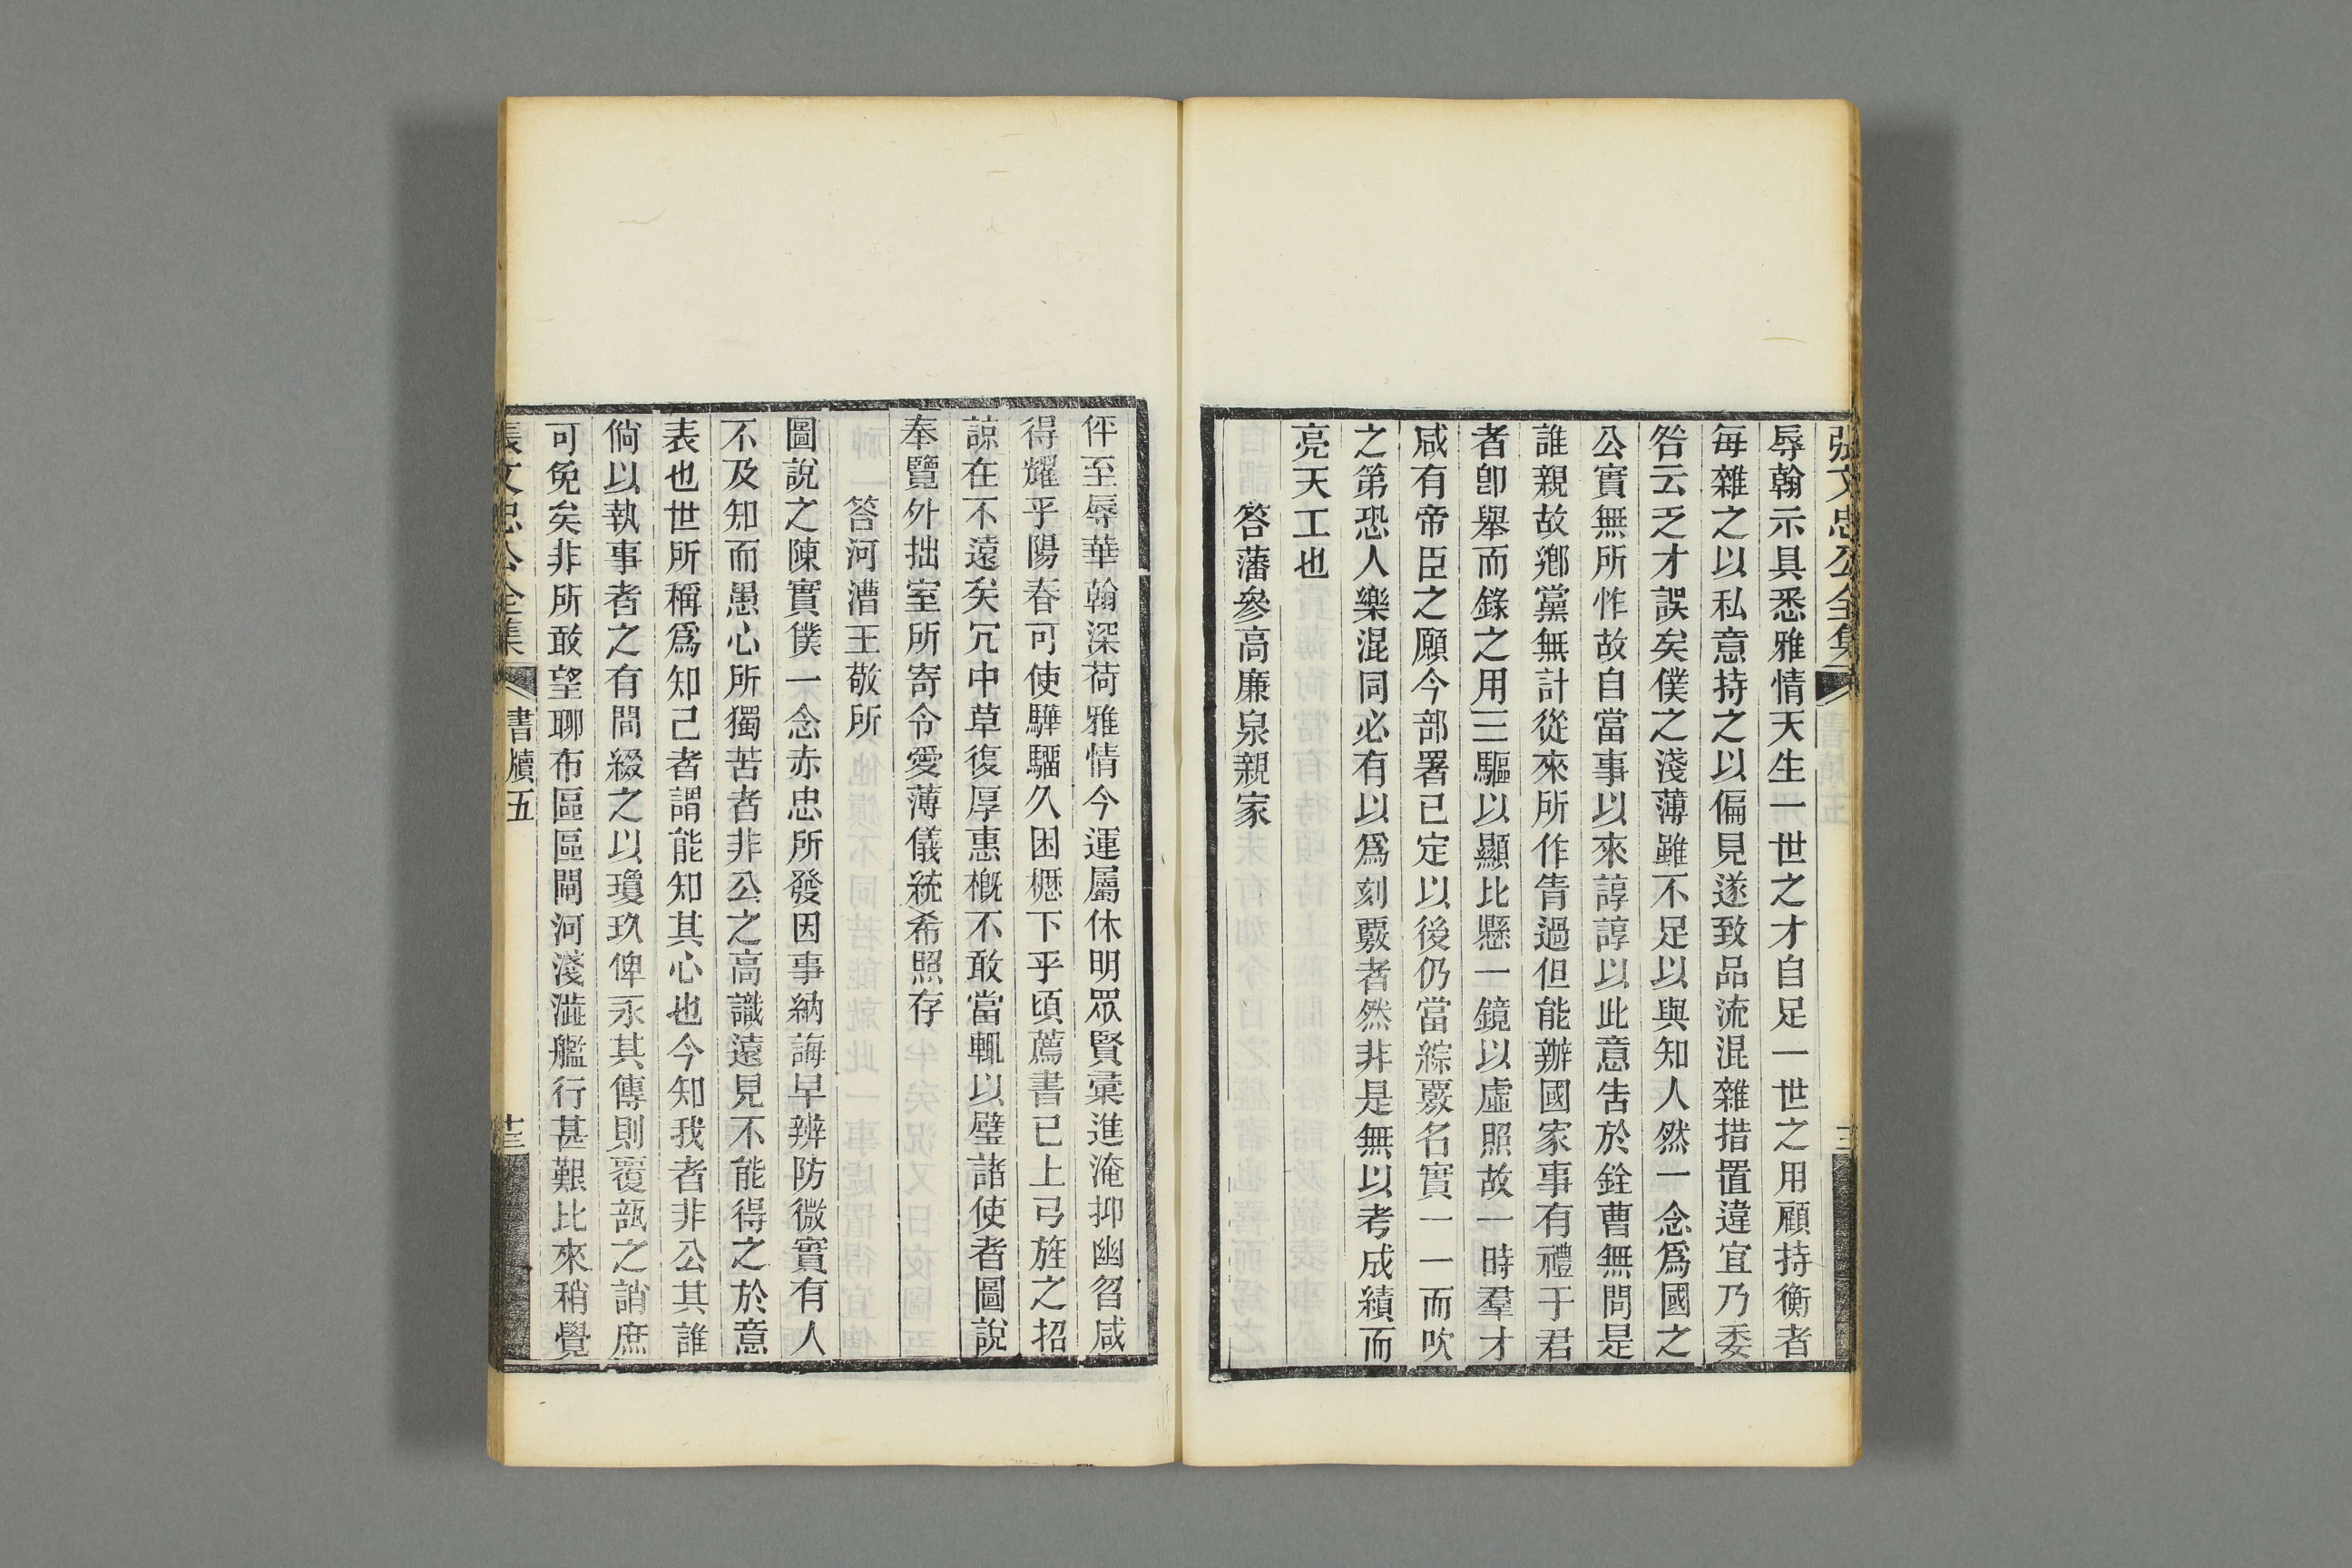 張文忠公全集
辱翰示具悉雅情天生一世之才自足一世之用顧持衡者
每雜之以私意持之以偏見遂致品流混雜措置違宜乃委
咎云乏才誤矣僕之淺薄雖不足以與知人然一念爲國之
公實無所怍故自當事以來諄諄以此意告於銓曹無問是
誰親故鄕黨無計從來所作眚過但能辦國家事有禮于君
者卽舉而錄之用三驅以顯比懸一鏡以虛照故一時羣才
咸有帝臣之願今部署已定以後仍當綜覈名實一一而吹
之第恐人樂混同必有以爲刻覈者然非是無以考成績而
亮天工也
答藩參高廉泉親家
伻至辱華翰深荷雅情今運屬休明眾賢彙進淹抑幽曶咸
得耀乎陽春可使驊騮久困櫪下乎頃薦書已上弓旌之招
諒在不遠矣冗中草復厚惠槪不敢當輒以璧諸使者圖說
奉覽外拙室所寄令愛薄儀統希照存
答河漕王敬所
圖說之陳實僕一念赤忠所發因事納誨早辨防微實有人
不及知而愚心所獨苦者非公之高識遠見不能得之於意
表也世所稱爲知己者謂能知其心也今知我者非公其誰
倘以執事者之有間綴之以瓊玖俾永其傳則覆瓿之誚庶
可免矣非所敢望聊布區區閘河淺澁艦行甚艱比來稍覺
張文忠公全集
書牘五